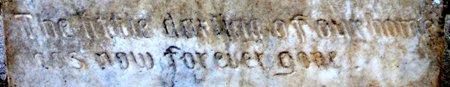 The little darling of our home
has now forever gone